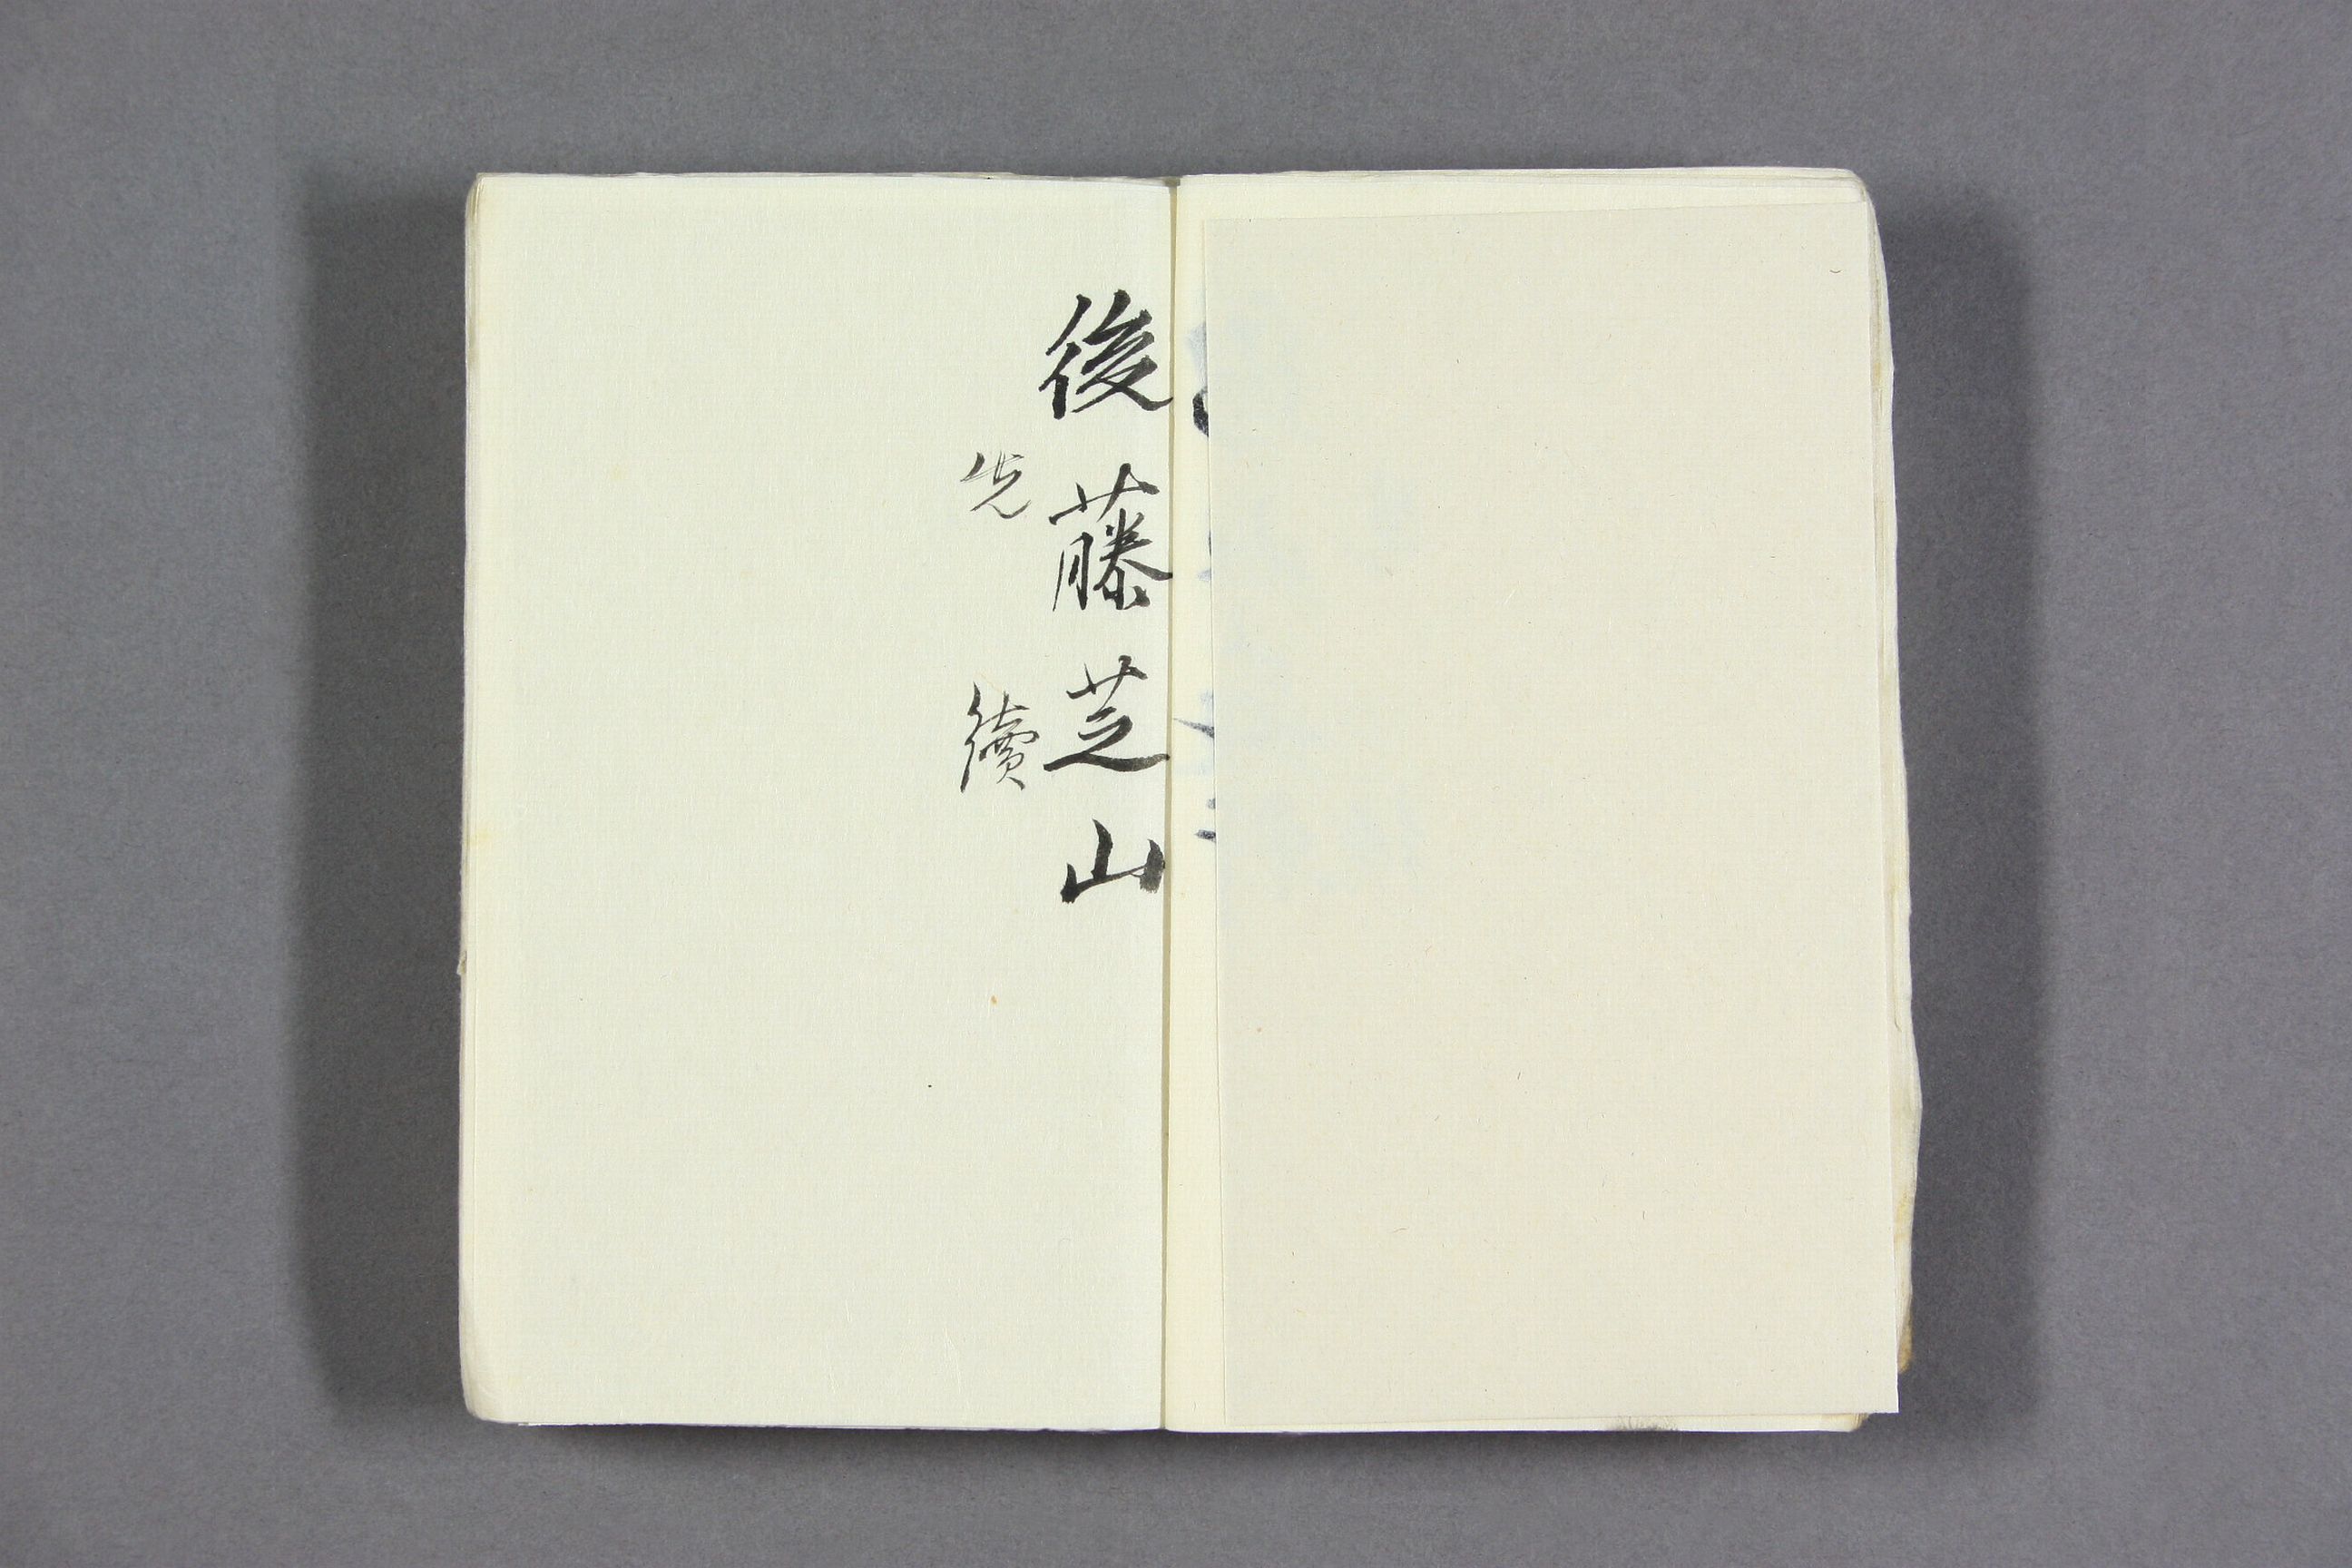 後藤芝山
先 續